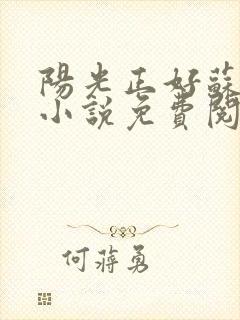 陽光正好蘇
小說免費閱
何蔣勇